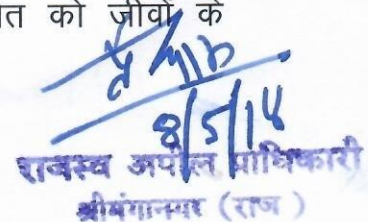 त को जीवों के
8/5/14
राजस्व अपील प्राधिकारी
श्रीगंगानगर (राज )